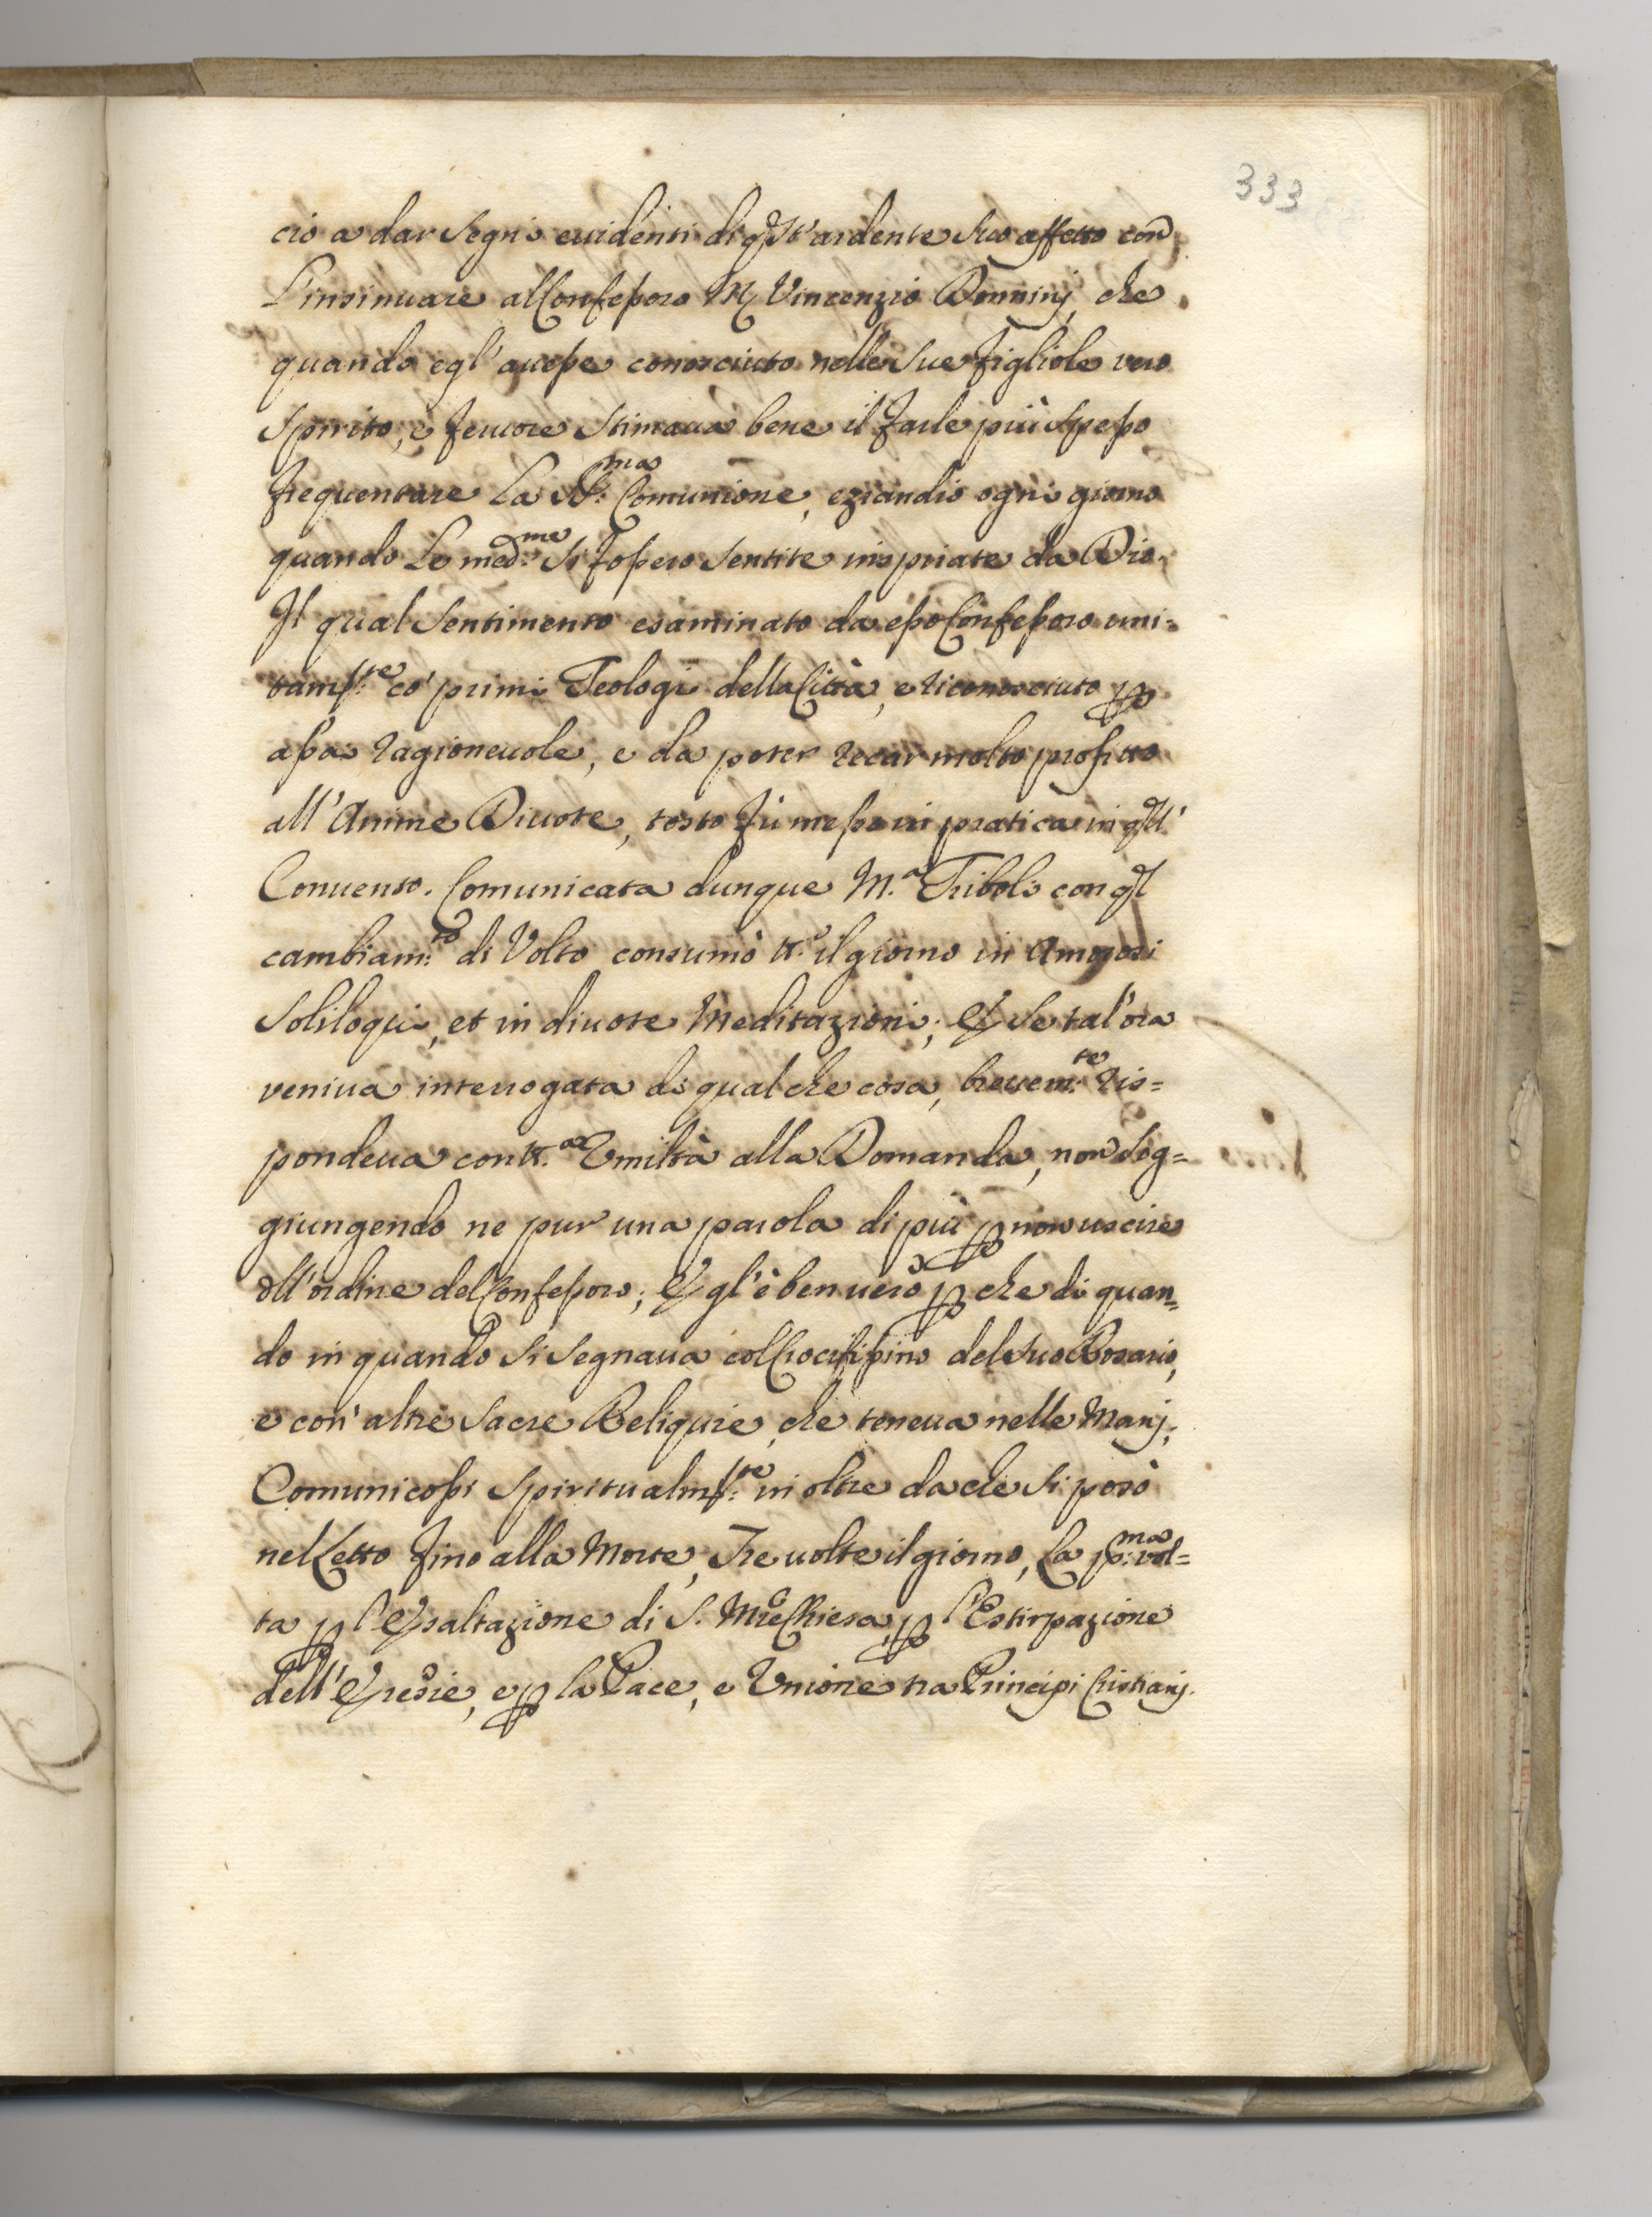 333
cio a dar Segni euidenti di qst' ardente suo affetto con
L'insinuare al Confessoro M. Vincenzio Bonninj, che
quando egl' auesse conosciuto nelle Sue figliole vero
Spirito, e feruore Stimaua bene il farle più Spesso
frequentare La SS:ma Comunione, eziandio ogni giorno
quando Le med:me Si fossero Sentite inspirate da Dio.
Il qual Sentimento esaminato da esso Confessoro uni-
tam:te co' primi Teologi della Città, e riconosciuto p
assai ragioneuole, e da poter recar molto profitto
all' Anime Diuote, tosto fù messo in pratica in qst'
Conuento. Comunicata dunque M.a Triboli con ql
cambiam:to di Volto consumò tt.o il giorno in Amorosi
Soliloqui, et in diuote Meditazioni; E Se tal'ora
veniua interrogata di qual che cosa, breuem:te ris=
pondeua con tt.a Vmiltà alla Domanda, non Sog=
giungendo ne pur una parola di più p non uscire
dll'ordine del Confessoro; E gl'è ben uero p che di quan=
do in quando Si Segnaua col Crocifissino del Suo Rosario,
e con' altre Sacre Reliquie, che teneua nelle Manj,
Comunicossi Spiritualm:te in oltre da che Si posò
nel Letto fino alla Morte, Tre uolte il giorno, La p:ma vol=
ta p l'Esaltazione di S. Mre Chiesa, p l'Estirpazione
dell' Eresie, e p la Pace, e Vnione tra Principi Cristianj.